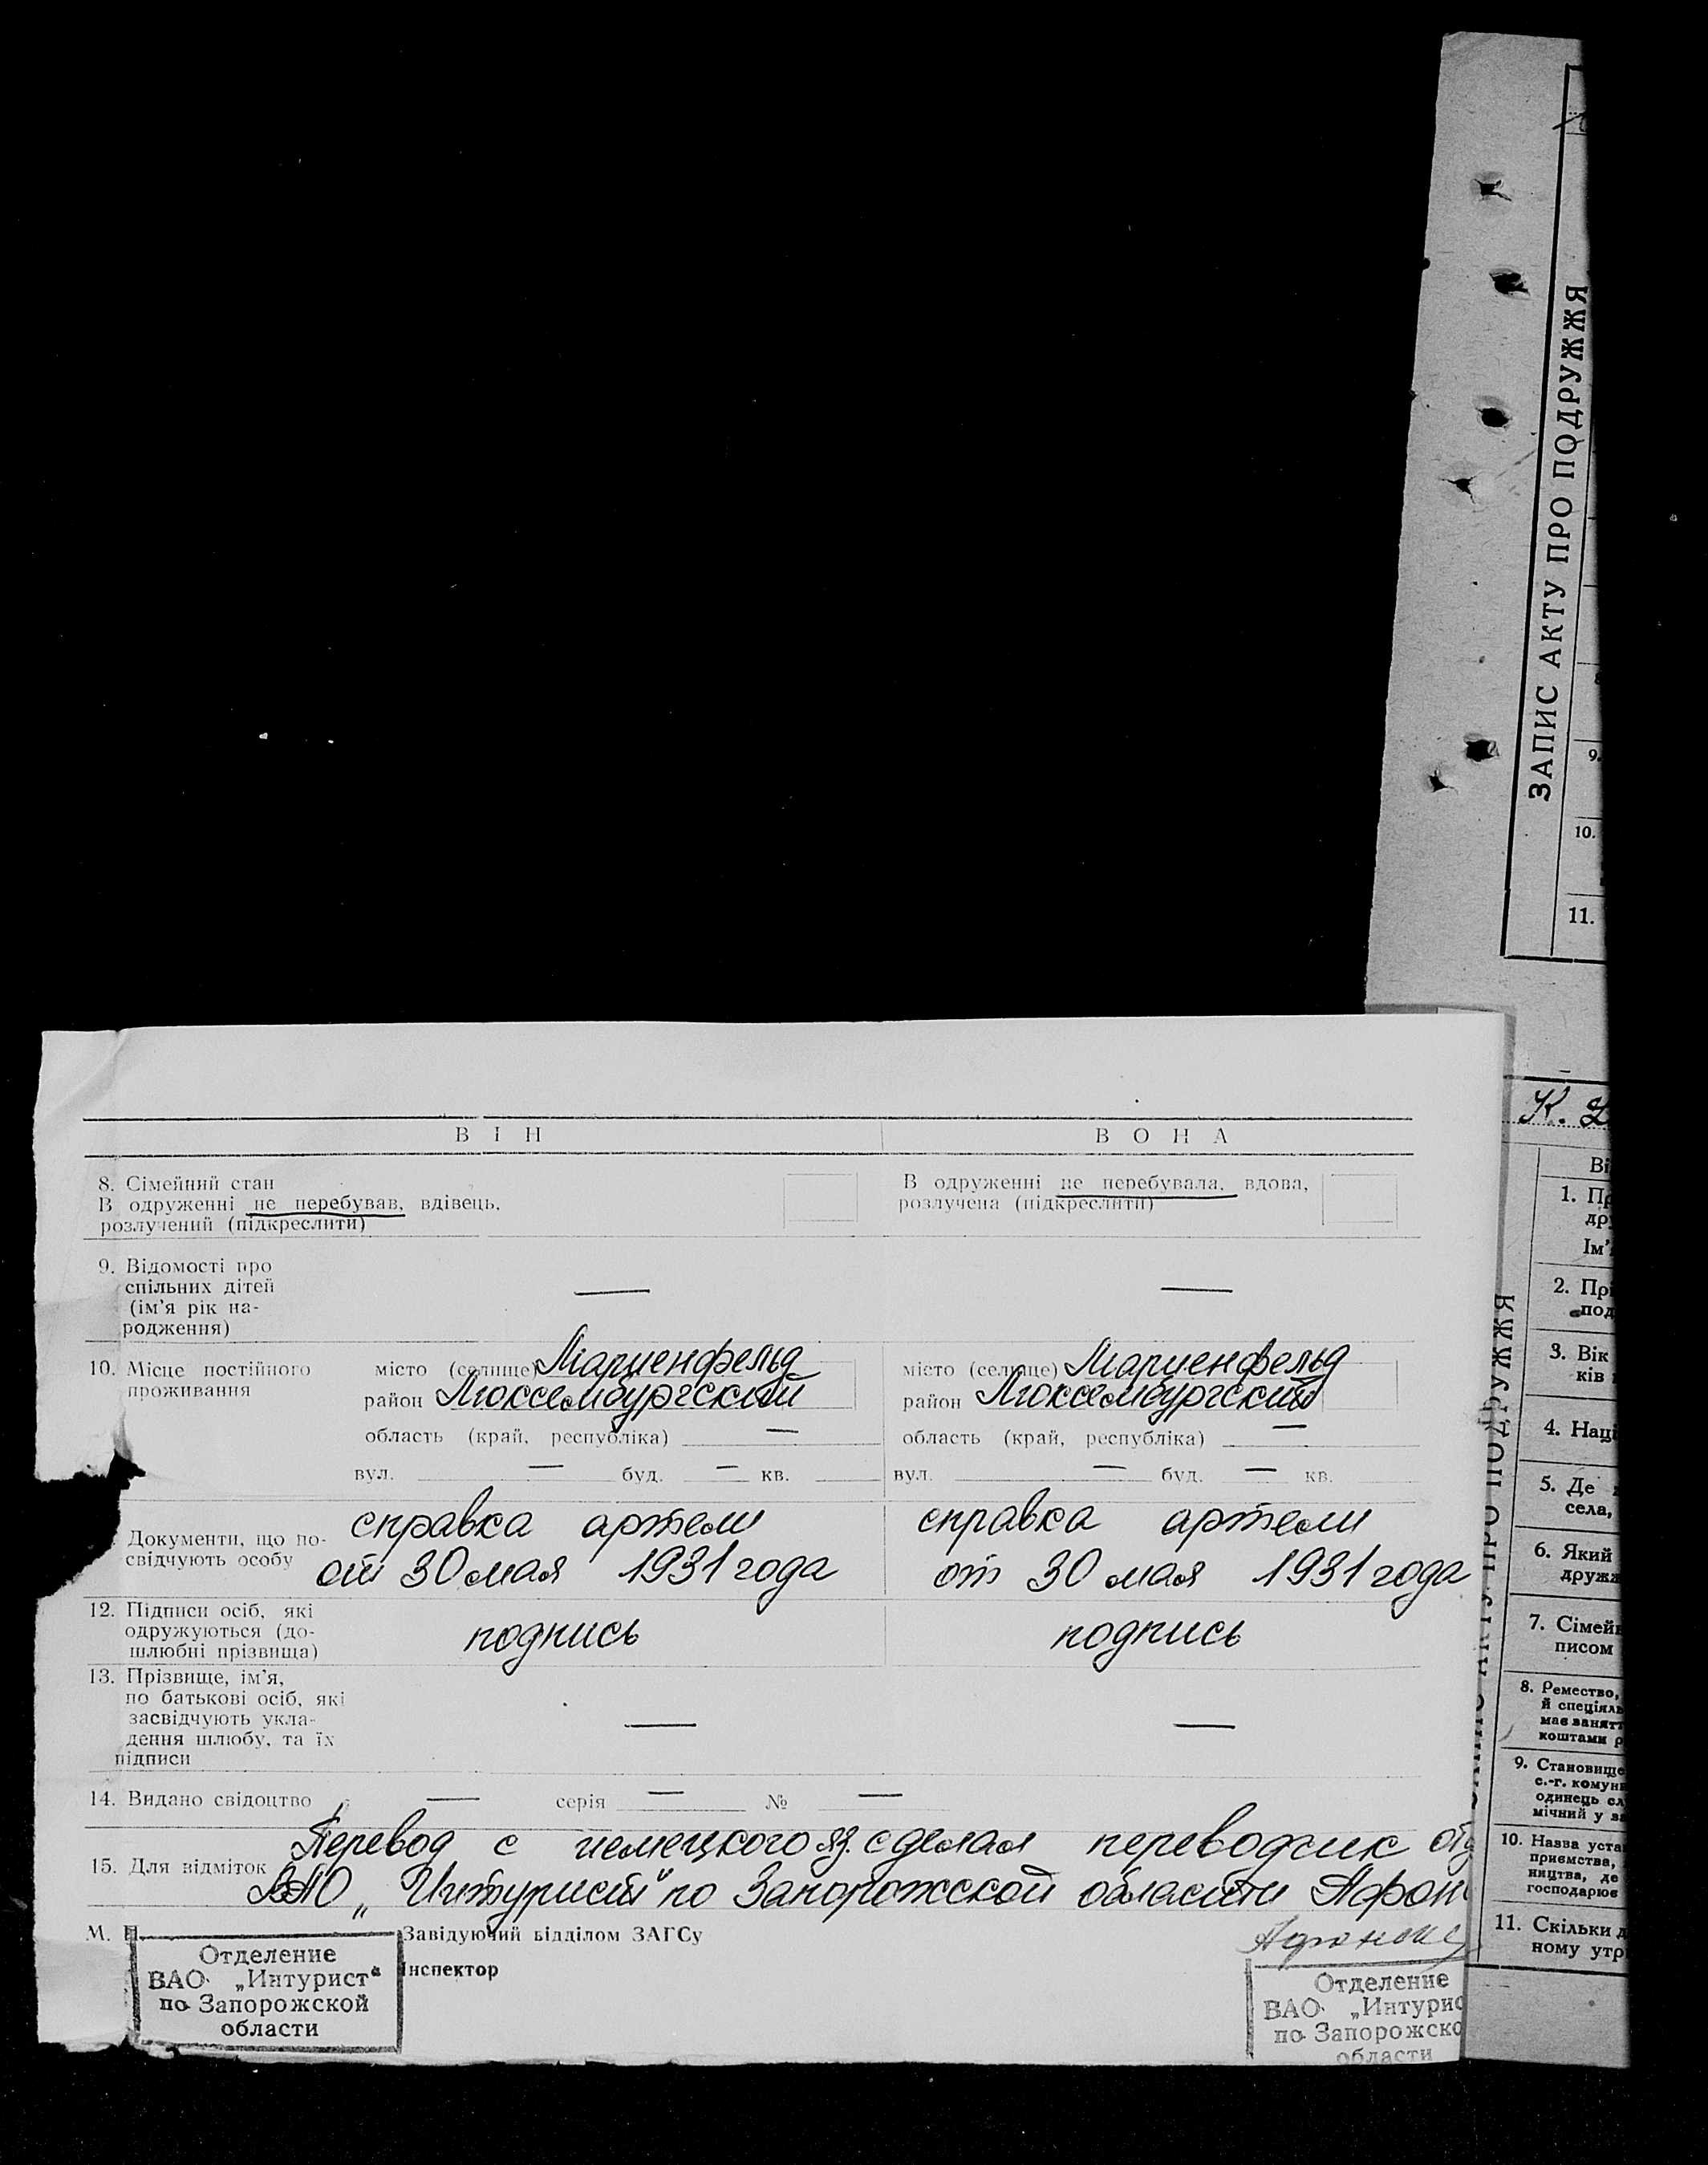 ЗАПИС АКТУ ПРО ПОДРУЖЖЯ
9.
10.
11.
В І Н В О Н А
8. Сімейний стан
В одруженні не перебував, вдівець,
розлучений (підкреслити)
В одруженні не перебувала, вдова,
розлучена (підкреслити)
9. Відомості про
спільних дітей
(ім'я рік на-
родження)
— —
10. Місце постійного
проживання
місто (селище) Мариенфельд
район Люксембургский
область (край, республіка) —
вул. — буд. — кв.
місто (селище) Мариенфельд
район Люксембургский
область (край, республіка) —
вул. — буд. — кв.
Документи, що по-
свідчують особу
справка артели
от 30 мая 1931 года
справка артели
от 30 мая 1931 года
12. Підписи осіб, які
одружуються (до-
шлюбні прізвища)
подпись подпись
13. Прізвище, ім'я,
по батькові осіб, які
засвідчують укла-
дення шлюбу, та їх
підписи
— —
14. Видано свідоцтво — серія — № —
15. Для відміток Перевод с немецкого яз. сделал переводчик отд
ВАО „Интурист" по Запорожской области Афон
М. П. Завідуючий відділом ЗАГСу
Інспектор
Отделение
ВАО „Интурист"
по Запорожской
области
Отделение
ВАО „Интурис
по Запорожско
области
ЗАПИС АКТУ ПРО ПОДРУЖЖЯ
К.
Ві
1. Пр
дру
Ім'
2. Прі
под
3. Вік
ків
4. Наці
5. Де
села,
6. Який
друж
7. Сімей
писом
8. Ремество,
й спеціяль
має занят
коштами р
9. Становище
с.-г. комун
одинець сл
мічний у
10. Назва уста
приємства,
ництва, де
господарює
11. Скільки д
ному утр